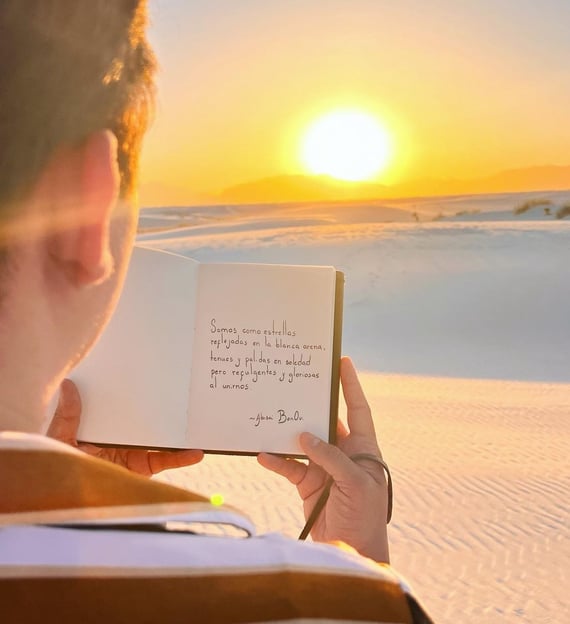 Somos como estrellas
reflejadas en la blanca arena,
tenues y palidas en soledad
pero refulgentes y gloriosas
al unirnos